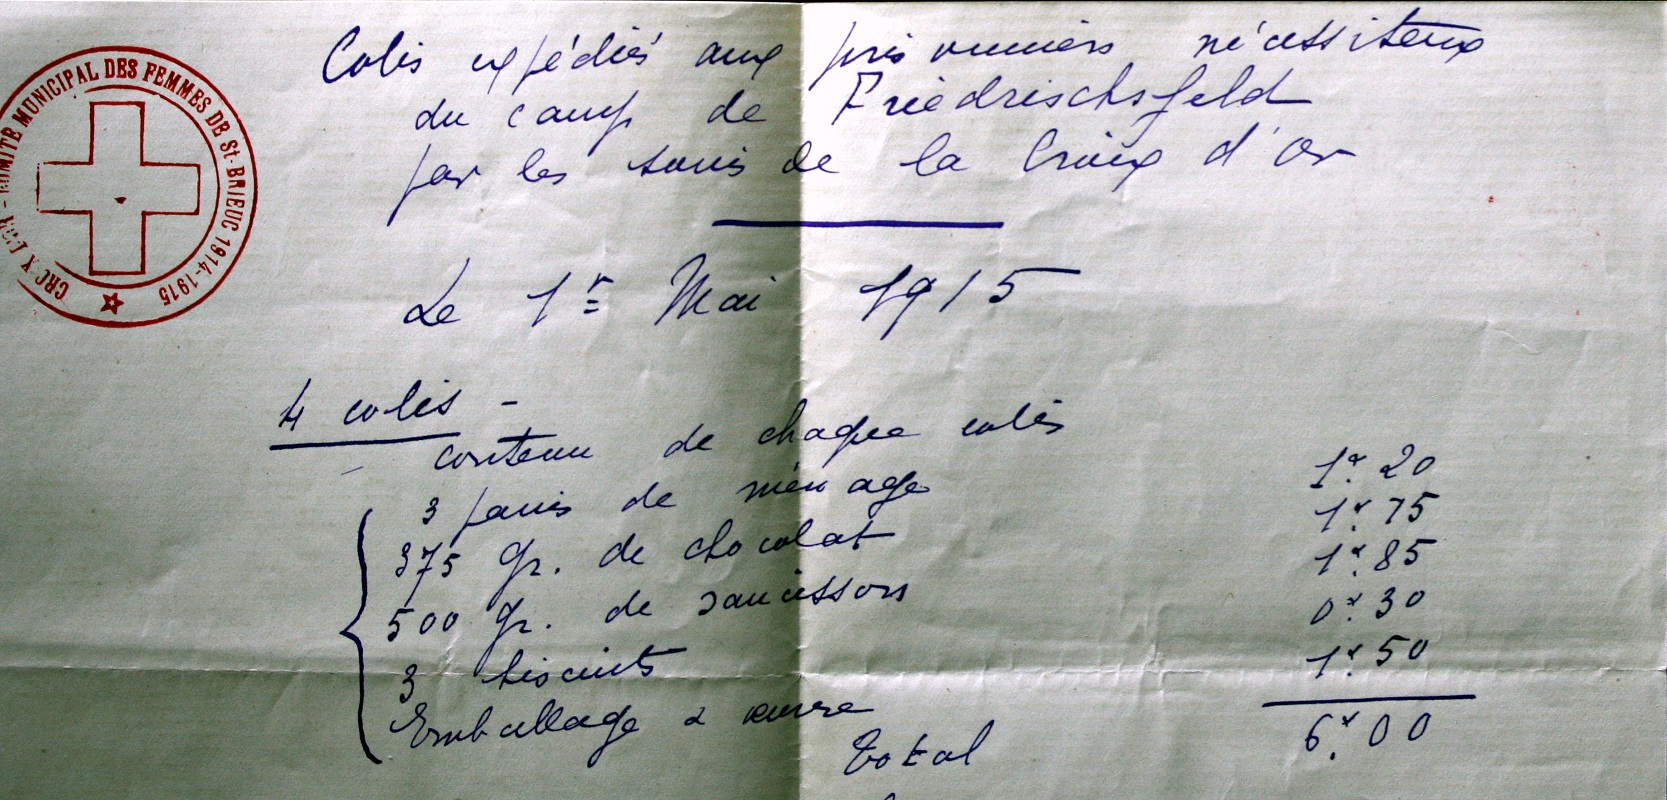 CROIX D'OR - COMITÉ MUNICIPAL DES FEMMES DE St-BRIEUC 1914-1915
Colis expédiés aux prisonniers nécessiteux
du camp de Friedrischsfeld
par les soins de la Croix d'Or
Le 1er Mai 1915
4 colis -
contenu de chaque colis
3 pains de ménage 1f.20
375 gr. de chocolat 1f.75
500 gr. de saucissons 1f.85
3 biscuits 0f.30
Emballage 1f.50
Total 6f.00